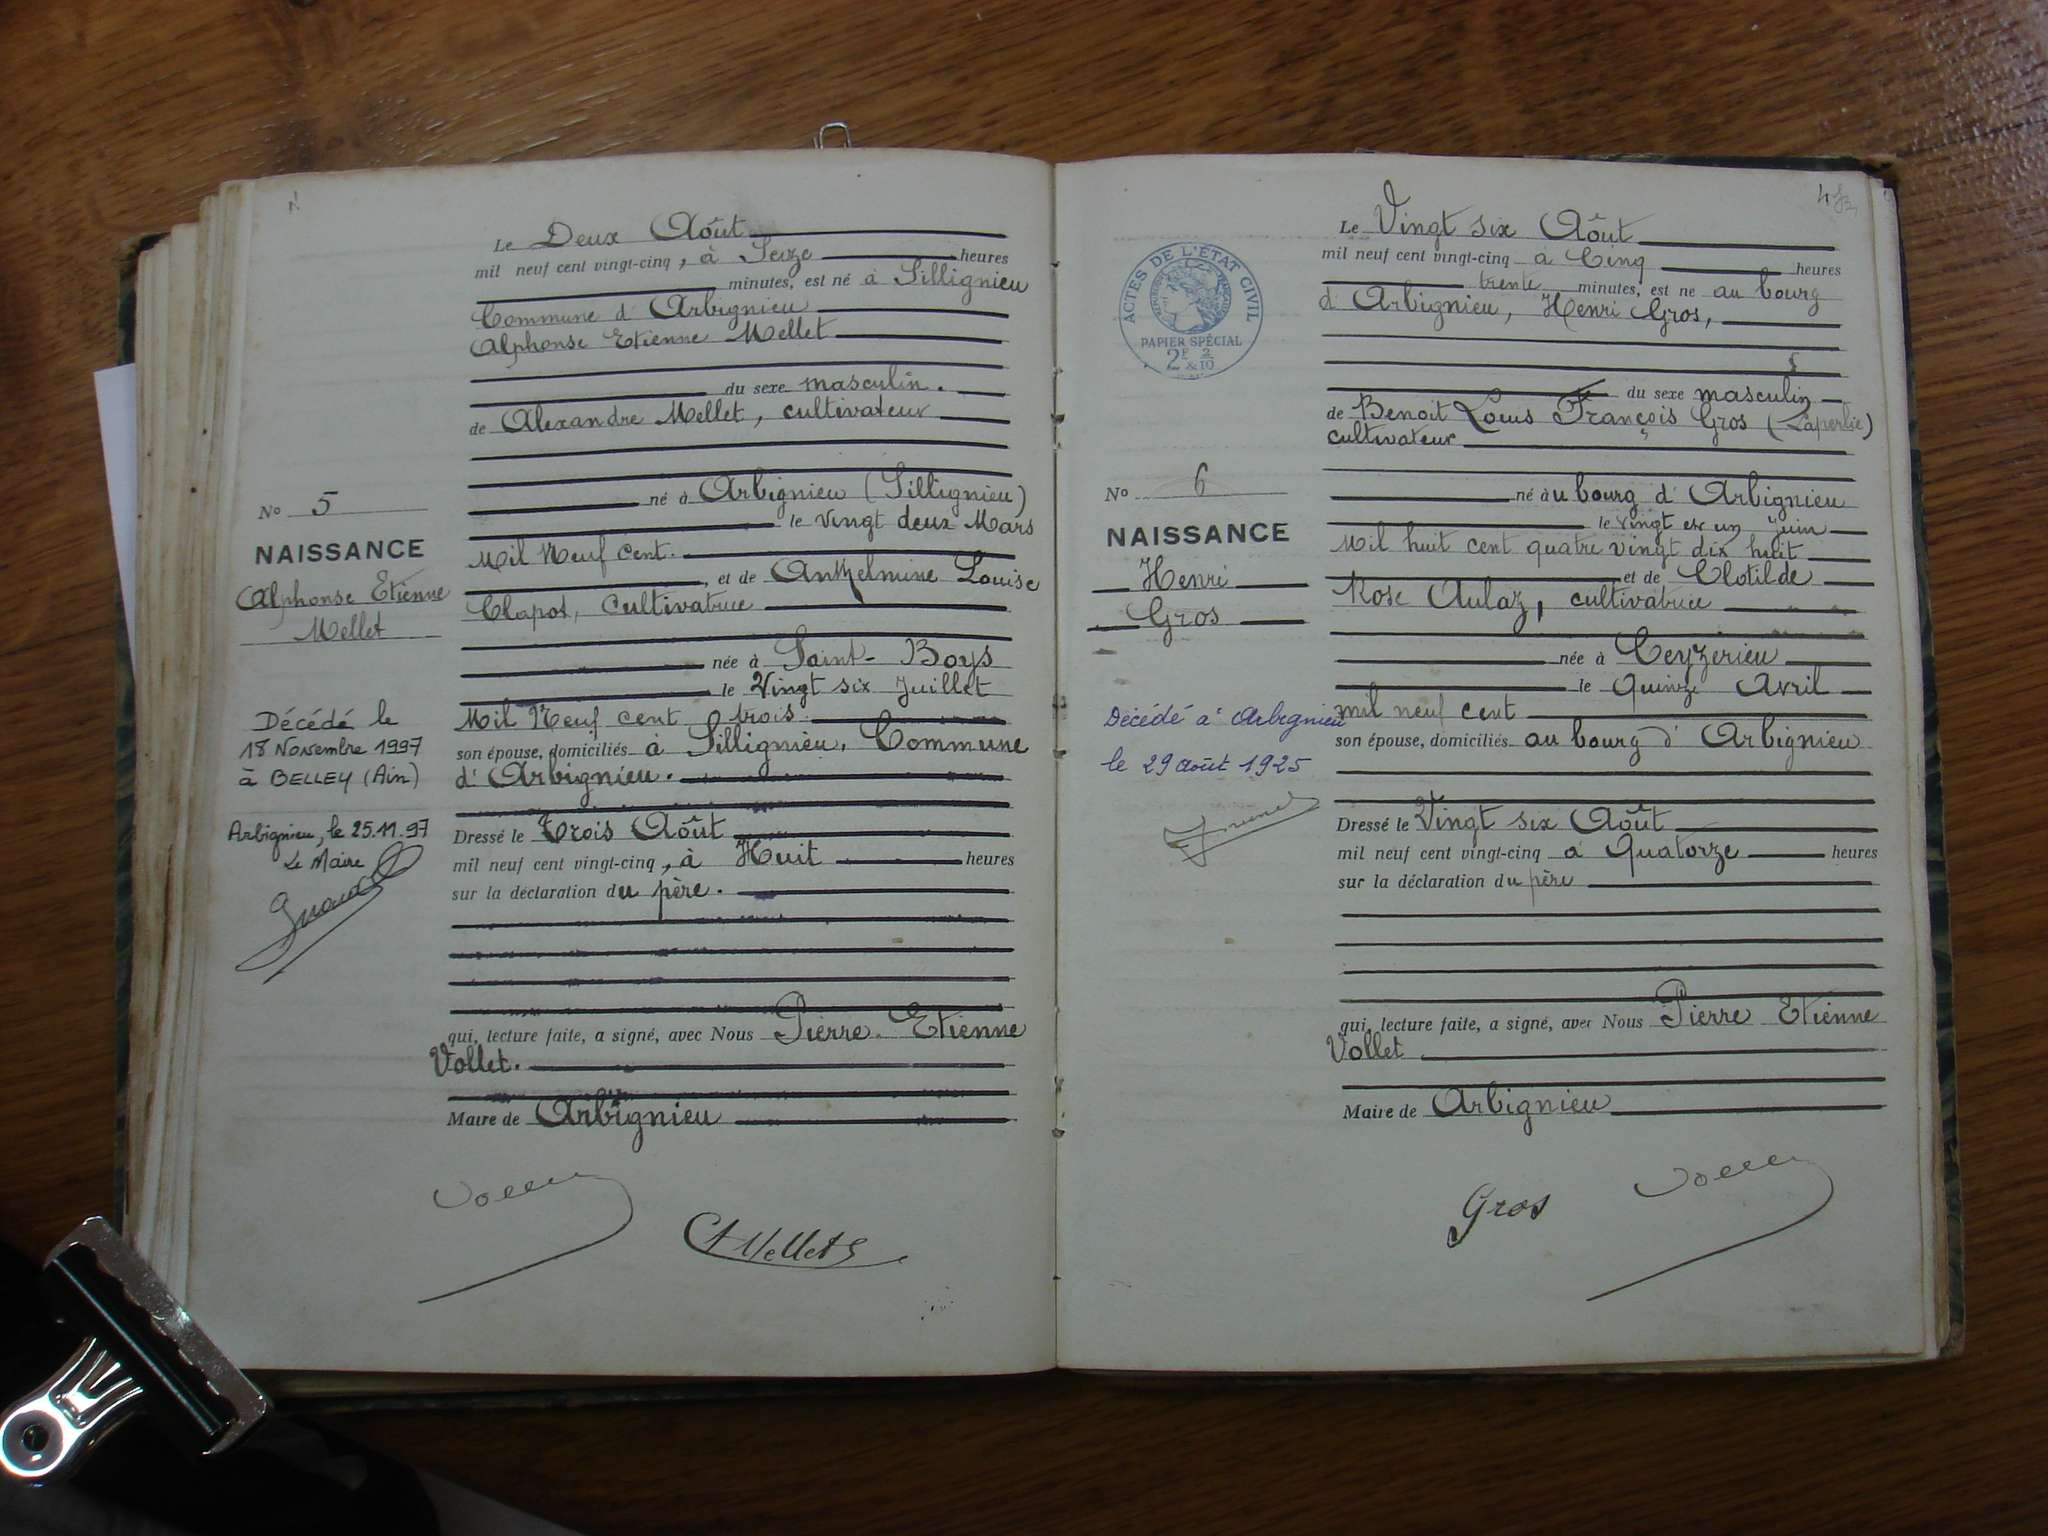 Le Deux Août
mil neuf cent vingt-cinq, à Seize heures
minutes, est né à Sillignieu
Commune d'Arbignieu
Alphonse Etienne Mellet
du sexe masculin.
de Alexandre Mellet, cultivateur
né à Arbignieu (Sillignieu)
le vingt deux Mars
Mil Neuf cent.
, et de Anthelmine Louise
Clapot, Cultivatrice
née à Saint-Boys
le Vingt six Juillet
Mil Neuf cent trois
son épouse, domiciliés à Sillignieu, Commune
d'Arbignieu.
Dressé le Trois Août
mil neuf cent vingt-cinq, à Huit heures
sur la déclaration du père.
qui, lecture faite, a signé, avec Nous Pierre Etienne
Vollet.
Maire de Arbignieu
Vollet
A Mellet
No 5
NAISSANCE
Alphonse Etienne
Mellet
Décédé le
18 Novembre 1997
à BELLEY (Ain)
Arbignieu, le 25.11.97
Le Maire
Le Vingt six Août
mil neuf cent vingt-cinq à Cinq heures
trente minutes, est né au bourg
d'Arbignieu, Henri Gros,
du sexe masculin
de Benoit Louis François Gros (Laperlie)
cultivateur
né au bourg d'Arbignieu
le vingt et un Juin
Mil huit cent quatre vingt dix huit
et de Clotilde
Rose Aulaz, cultivatrice
née à Ceyzérieu
le Quinze Avril
mil neuf cent
son épouse, domiciliés au bourg d'Arbignieu
Dressé le Vingt six Août
mil neuf cent vingt-cinq à Quatorze heures
sur la déclaration du père
qui, lecture faite, a signé, avec Nous Pierre Etienne
Vollet
Maire de Arbignieu
Gros
Vollet
ACTES DE L'ÉTAT CIVIL
RÉPUBLIQUE FRANÇAISE
PAPIER SPÉCIAL
2F & 2/10
No 6
NAISSANCE
Henri
Gros
Décédé à Arbignieu
le 29 août 1925